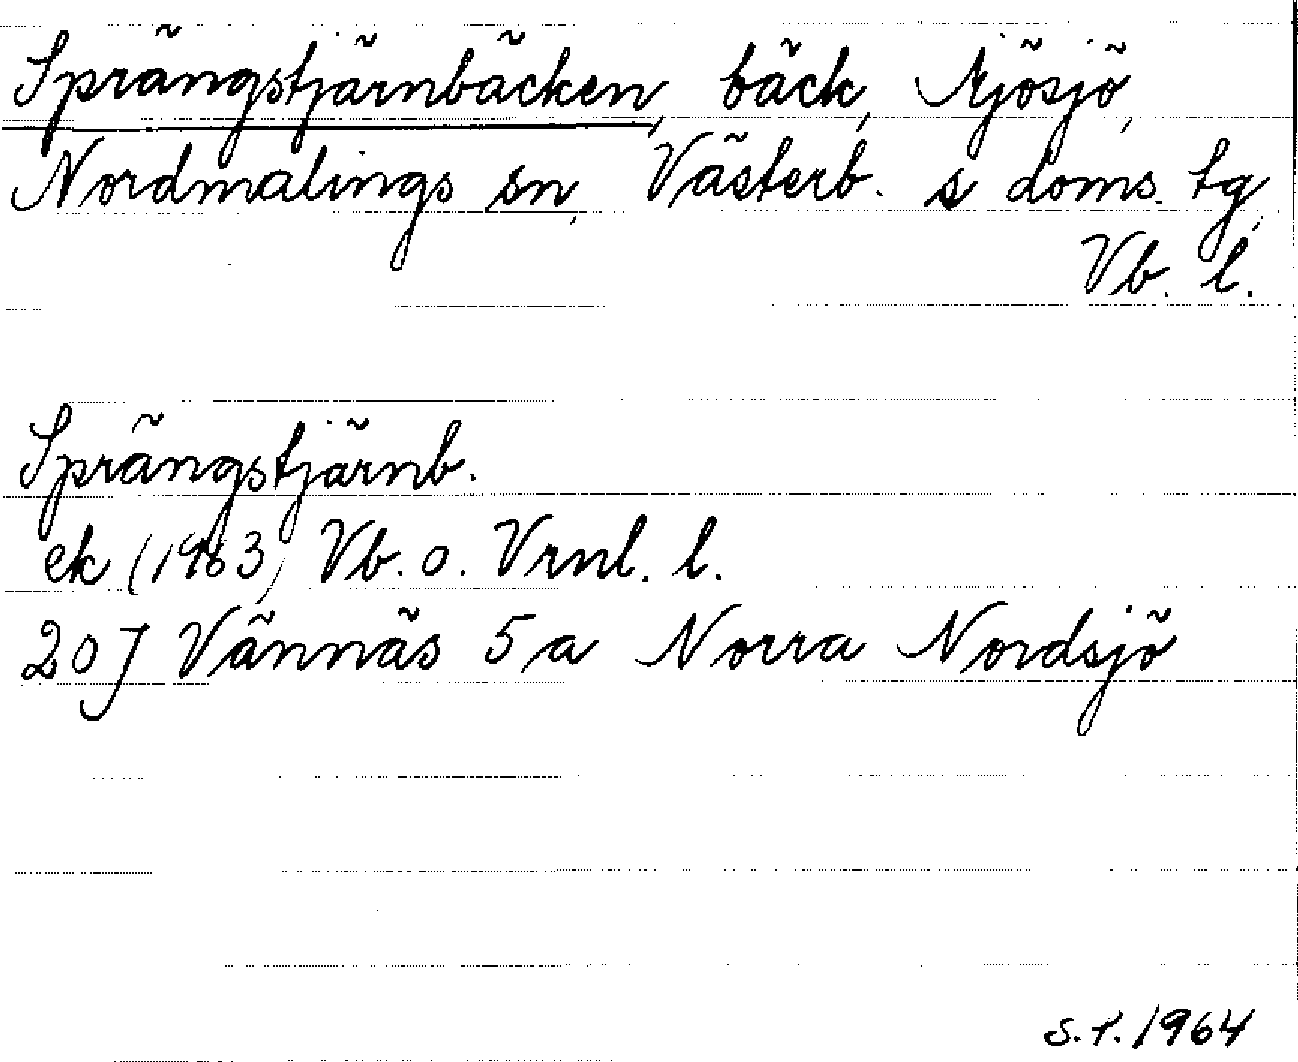 Sprängstjärnbäcken, bäck, Mjösjö,
Nordmalings sn, Västerb. s doms. tg,
Vb. l.
Sprängstjärnb.
ek (1963) Vb. o. Vrnl. l.
20J Vännäs 5a Norra Nordsjö
S.P. 1964